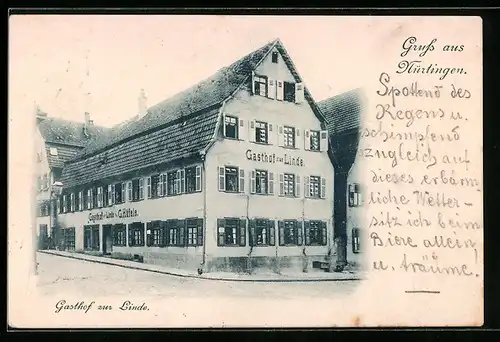 Gruß aus
Nürtingen.
Spottend des
Regens u.
schimpfend
zugleich auf
dieses erbärm-
liche Wetter-
sitz ich beim
Biere allein
u. träume!
Gasthof zur Linde.
Gasthof zur Linde v. G. Häfele.
Gasthof zur Linde.